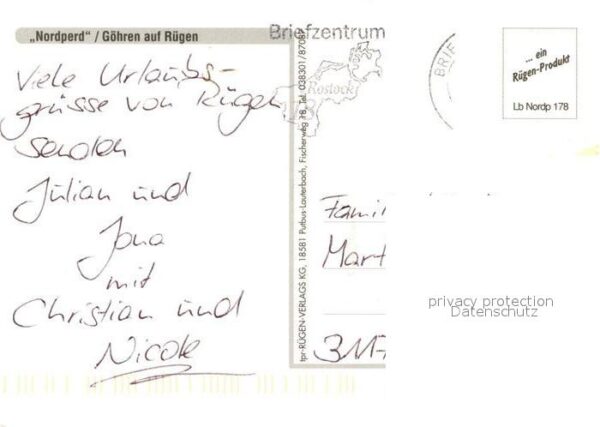 „Nordperd“ / Göhren auf Rügen
Viele Urlaubs-
grüsse von Rügen
senden
Julian und
Jona
mit
Christian und
Nicole
tpr-RÜGEN-VERLAGS KG, 18581 Putbus-Lauterbach, Fischerweg 18, Tel. 038301/870
Briefzentrum
Rostock
18
BRIE
... ein
Rügen-Produkt
Lb Nordp 178
Famil
Mart
privacy protection
Datenschutz